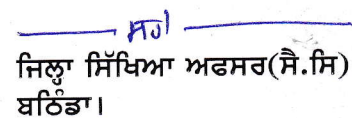 ਸਹੀ
ਜਿਲ੍ਹਾ ਸਿੱਖਿਆ ਅਫਸਰ(ਸੈ.ਸਿ)
ਬਠਿੰਡਾ।